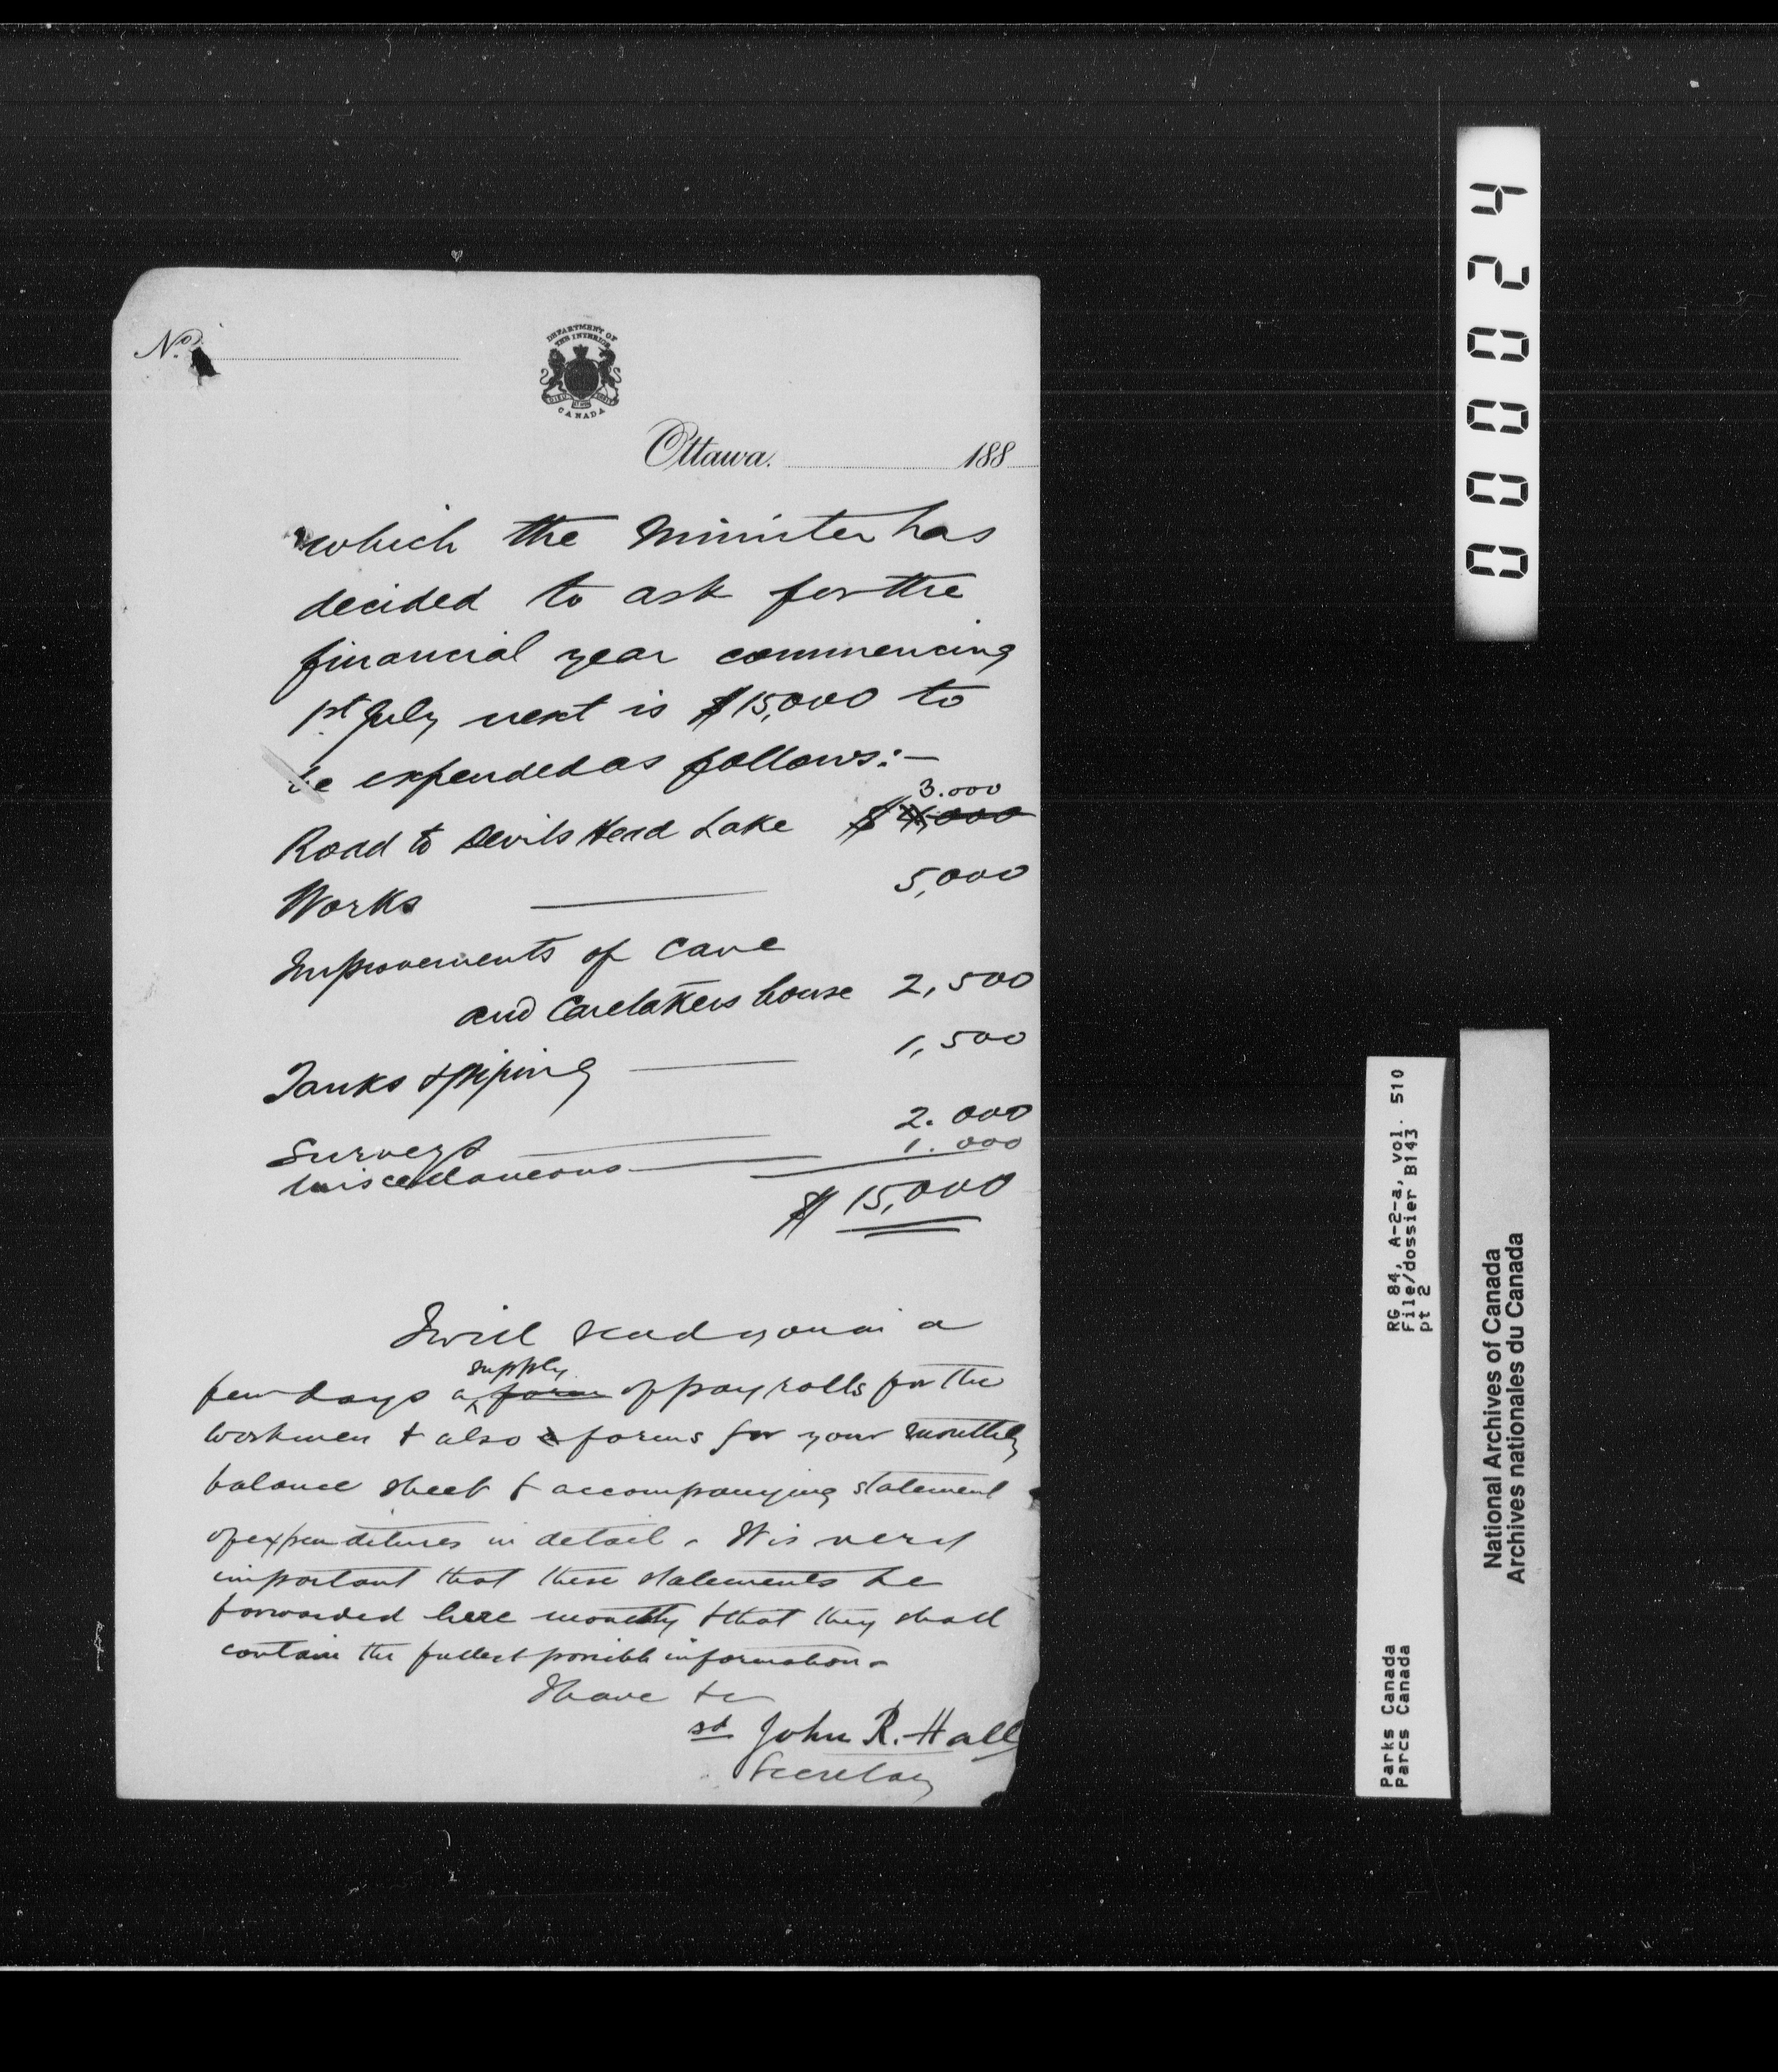 No.
DEPARTMENT OF
THE INTERIOR
CANADA
Ottawa. 188
which the Minister has
decided to ask for the
financial year commencing
1st July next is $15,000 to
be expended as follows:—
3.000
Road to Devils Head Lake $4,000
Works — 5,000
Improvements of Cave
and Caretakers house 2,500
Tanks & piping — 1,500
Surveys — 2.000
Miscellaneous — 1.000
$15,000
I will send you in a
supply
few days a form of pay rolls for the
workmen & also forms for your monthly
balance sheet & accompanying statement
of expenditures in detail. It is very
important that these statements be
forwarded here monthly & that they shall
contain the fullest possible information.
I have &c
sd John R. Hall
Secretary
000024
RG 84, A-2-a, vol. 510
File/dossier B143
pt 2
Parks Canada
Parcs Canada
National Archives of Canada
Archives nationales du Canada